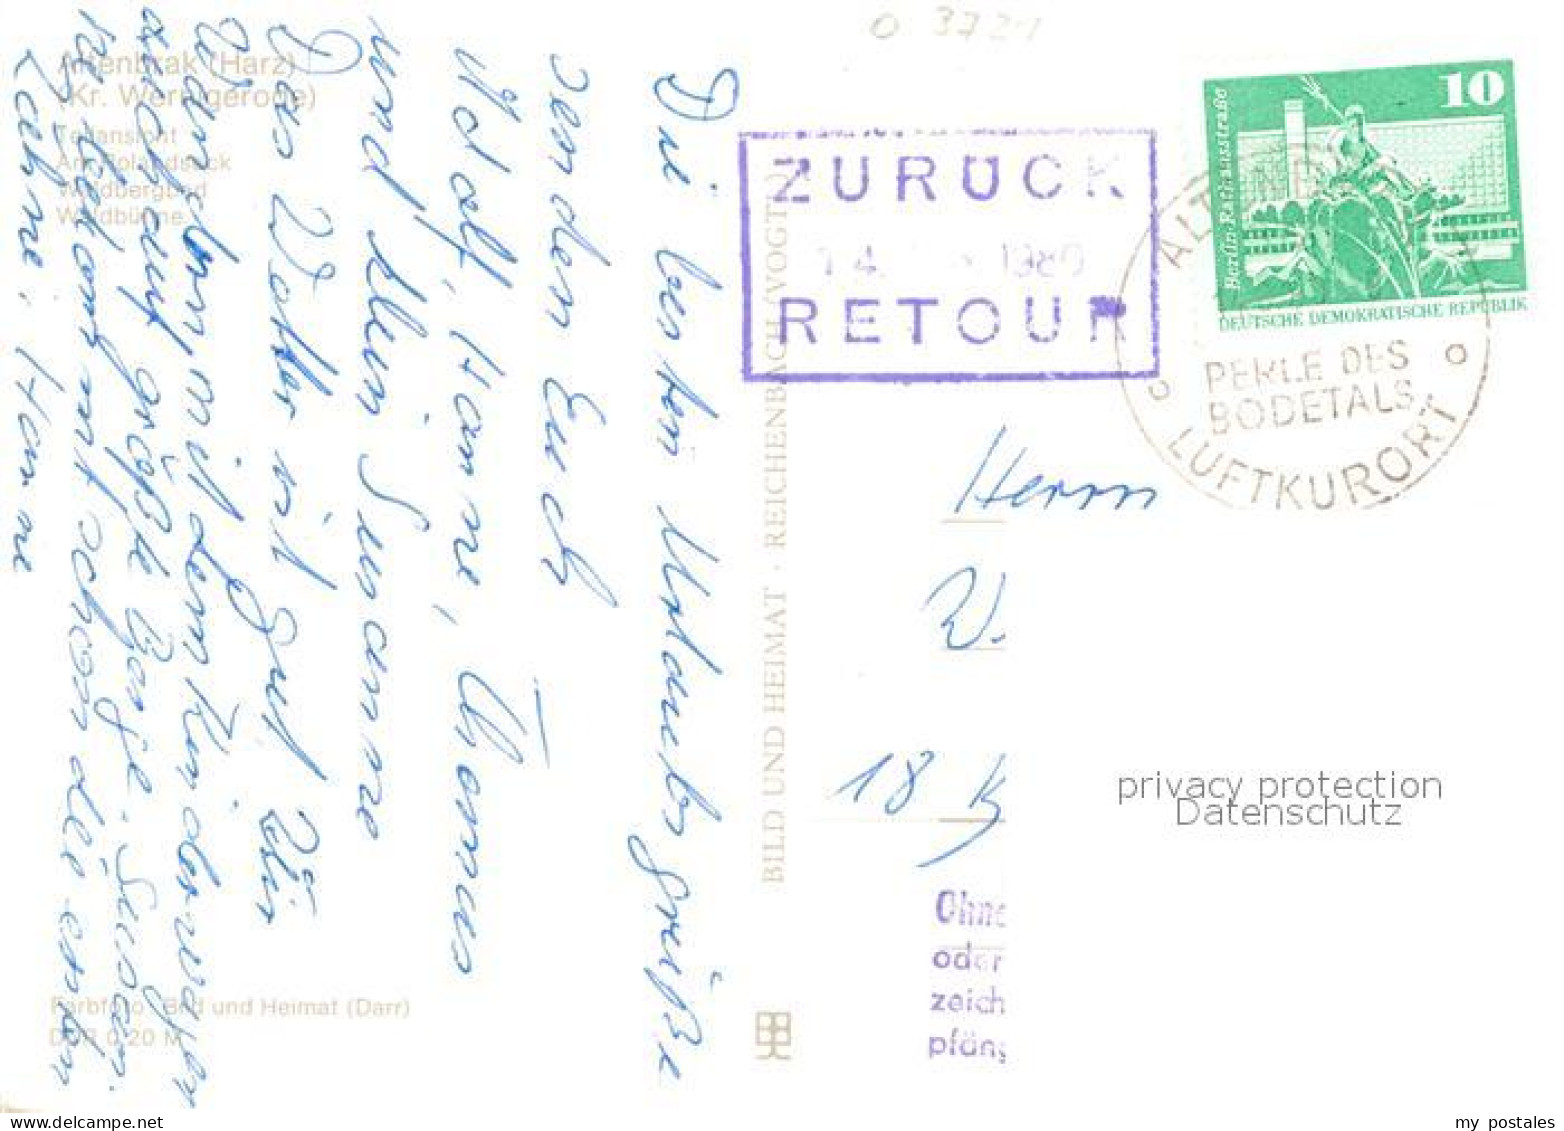 Altenbrak (Harz)
(Kr. Wernigerode)
Teilansicht
Am Rolandseck
Waldbergbad
Waldbühne
Die besten Urlaubsgrüße
senden Euch
Adolf, Hanne, Thomas
und klein Susanne
Das Wetter ist gut
wir
mit dem Kinderwagen
auch auf große Berge. Susann.
bekommt schon die ersten
Zähne. Hanne
Farbfoto: Bild und Heimat (Darr)
DDR 0,20 M
BILD UND HEIMAT · REICHENBACH (VOGTL)
0 3721
ZURÜCK
14. 1980
RETOUR
10
Berlin-Rathausstraße
DEUTSCHE DEMOKRATISCHE REPUBLIK
PERLE DES
BODETALS
LUFTKURORT
Herrn
W.
18 K
Ohne
oder
zeich
pfäng
privacy protection
Datenschutz
my postales